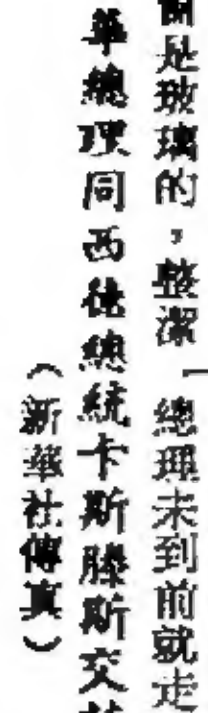 是玻璃的，整潔「總理未到前就走
華總理同西德總統卡斯滕斯交
（新華社傳真）